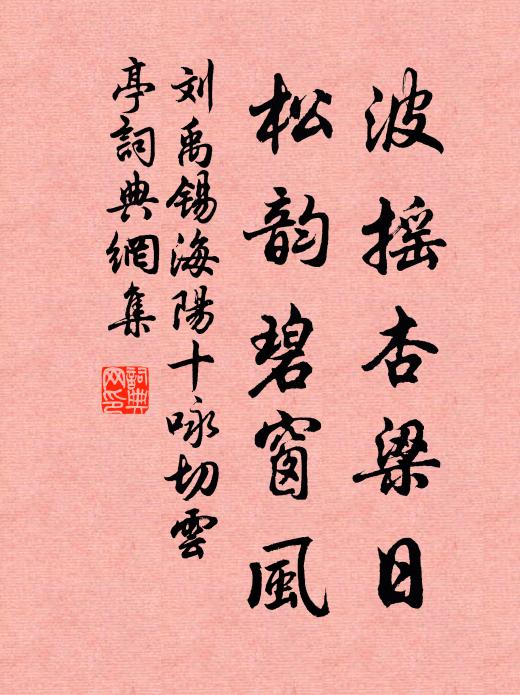 波摇杏梁日
松韵碧窗風
刘禹锡海陽十咏切雲
亭詞典網集
詞典
网印